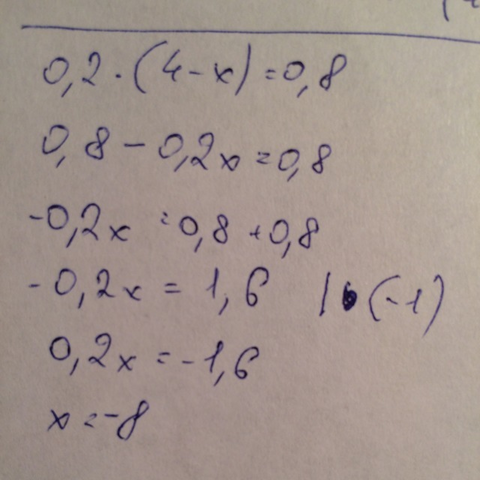 0,2·(4-x)=0,8
0,8-0,2x=0,8
-0,2x=0,8+0,8
-0,2x=1,6 |·(-1)
0,2x=-1,6
x=-8